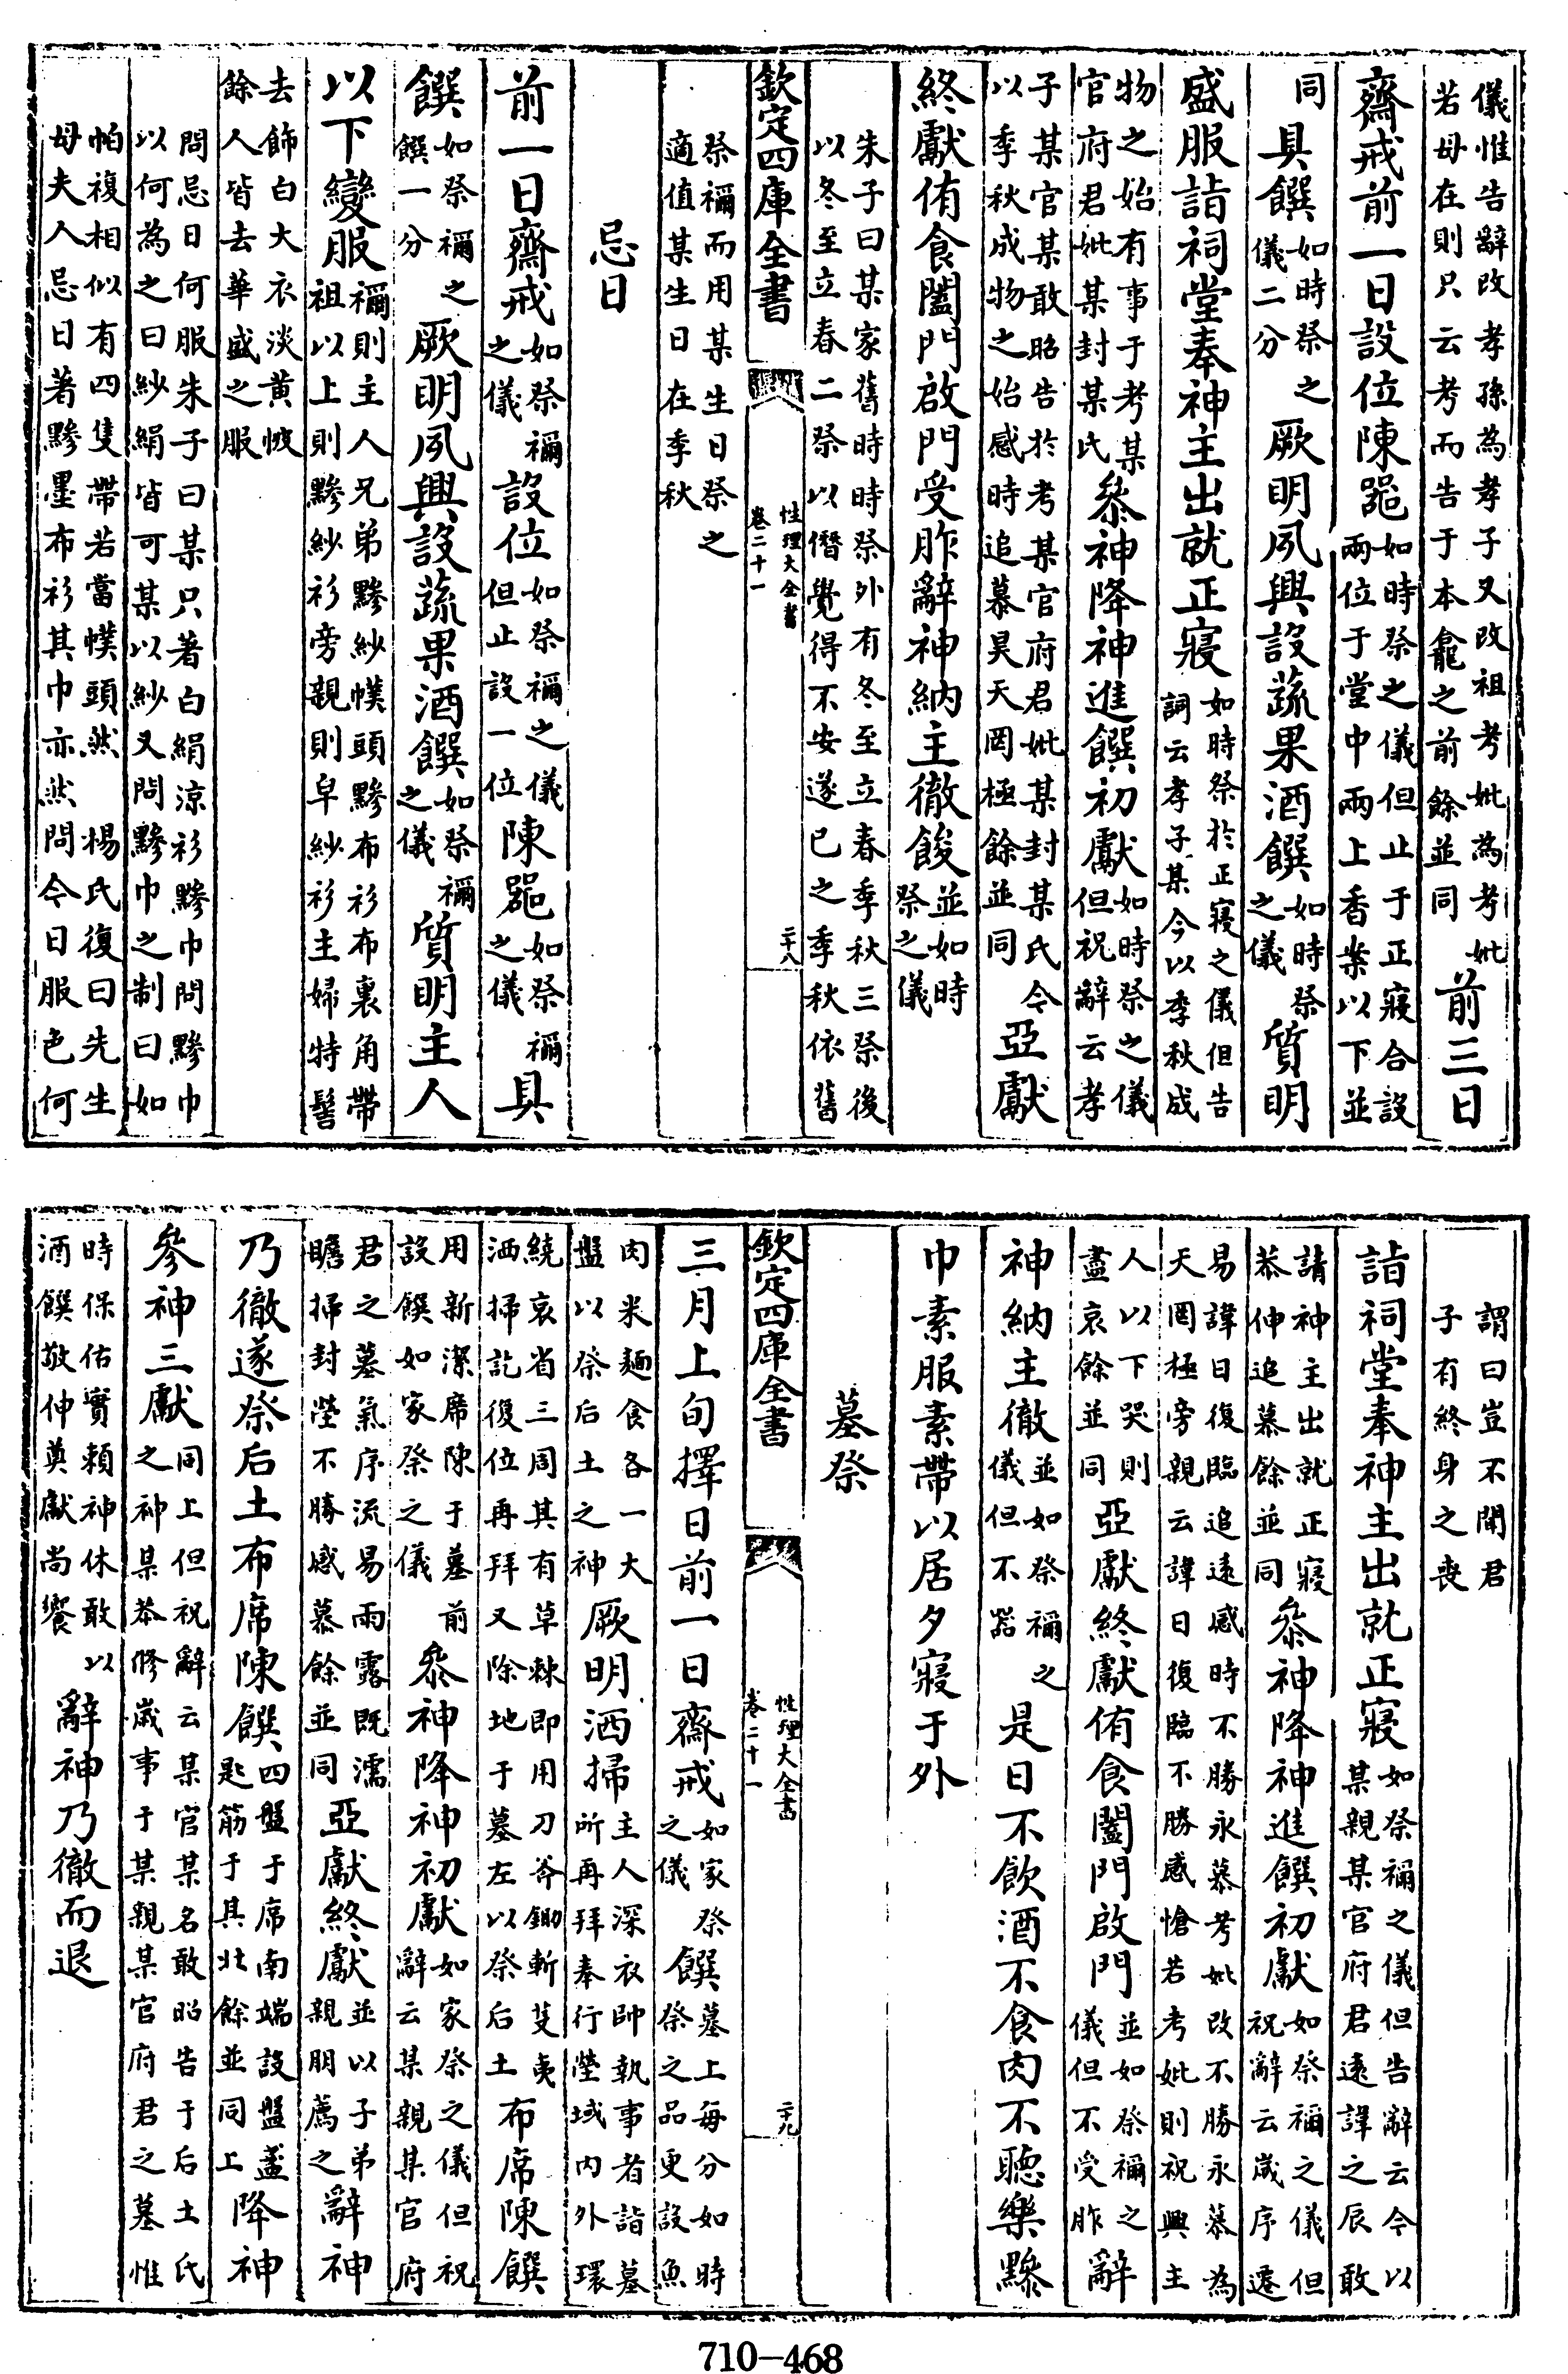 儀惟告辭改孝孫為孝子又改祖考妣為考妣
若母在則只云考而告于本龕之前餘並同 前三日
齋戒前一日設位陳器 如時祭之儀但止于正寢合設
兩位于堂中兩上香案以下並
同 具饌 如時祭之
儀二分 厥明夙興設蔬果酒饌 如時祭
之儀 質明
盛服詣祠堂奉神主出就正寢 如時祭於正寢之儀但告
詞云孝子某今以季秋成
物之始有事于考某
官府君妣某封某氏 參神降神進饌初獻 如時祭之儀
但祝辭云孝
子某官某敢昭告於考某官府君妣某封某氏今
以季秋成物之始感時追慕昊天罔極餘並同 亞獻
終獻侑食闔門啟門受胙辭神納主徹餕 並如時
祭之儀
朱子曰某家舊時時祭外有冬至立春季秋三祭後
以冬至立春二祭以僭覺得不安遂已之季秋依舊
欽定四庫全書 性理大全書
卷二十一 二十八
祭禰而用某生日祭之
適值某生日在季秋
忌日
前一日齋戒 如祭禰
之儀 設位 如祭禰之儀
但止設一位 陳器 如祭禰
之儀 具
饌 如祭禰之
饌一分 厥明夙興設蔬果酒饌 如祭禰
之儀 質明主人
以下變服 禰則主人兄弟黲紗幞頭黲布衫布裏角帶
祖以上則黲紗衫旁親則皁紗衫主婦特髻
去飾白大衣淡黃帔
餘人皆去華盛之服
問忌日何服朱子曰某只著白絹涼衫黲巾問黲巾
以何為之曰紗絹皆可某以紗又問黲巾之制曰如
帕複相似有四隻帶若當幞頭然 楊氏復曰先生
母夫人忌日著黲墨布衫其巾亦然問今日服色何
謂曰豈不聞君
子有終身之喪
詣祠堂奉神主出就正寢 如祭禰之儀但告辭云今以
某親某官府君遠諱之辰敢
請神主出就正寢
恭伸追慕餘並同 參神降神進饌初獻 如祭禰之儀但
祝辭云歲序遷
易諱日復臨追遠感時不勝永慕考妣改不勝永慕為
天罔極旁親云諱日復臨不勝感愴若考妣則祝興主
人以下哭
盡哀餘並同 亞獻終獻侑食闔門啟門 並如祭禰之
儀但不受胙 辭
神納主徹 並如祭禰之
儀但不餕 是日不飲酒不食肉不聽樂黲
巾素服素帶以居夕寢于外
墓祭
欽定四庫全書 性理大全書
卷二十一 二十九
三月上旬擇日前一日齋戒 如家祭
之儀 饌 墓上每分如時
祭之品更設魚
肉米麵食各一大
盤以祭后土之神 厥明洒掃 主人深衣帥執事者詣墓
所再拜奉行塋域內外環
繞哀省三周其有草棘即用刀斧鋤斬芟夷
洒掃訖復位再拜又除地于墓左以祭后土 布席陳饌
用新潔席陳于墓前
設饌如家祭之儀 參神降神初獻 如家祭之儀但祝
辭云某親某官府
君之墓氣序流易雨露既濡
瞻掃封塋不勝感慕餘並同 亞獻終獻 並以子弟
親朋薦之 辭神
乃徹遂祭后土布席陳饌 四盤于席南端設盤盞
匙筯于其北餘並同上 降神
參神三獻 同上但祝辭云某官某名敢昭告于后土氏
之神某恭修歲事于某親某官府君之墓惟
時保佑實賴神休敢以
酒饌敬伸奠獻尚饗 辭神乃徹而退
710-468